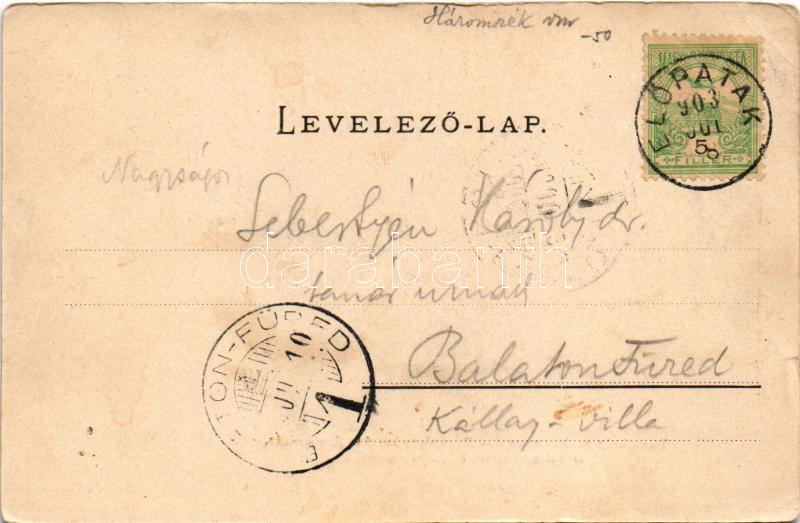 Háromszék vm
-50
ELŐPATAK
903
JUL
5
FILLER
LEVELEZŐ-LAP.
Sebestyén Károly dr.
tanár urnak
darabanth
BalatonFüred
Kállay-villa
TON-FÜRED
10